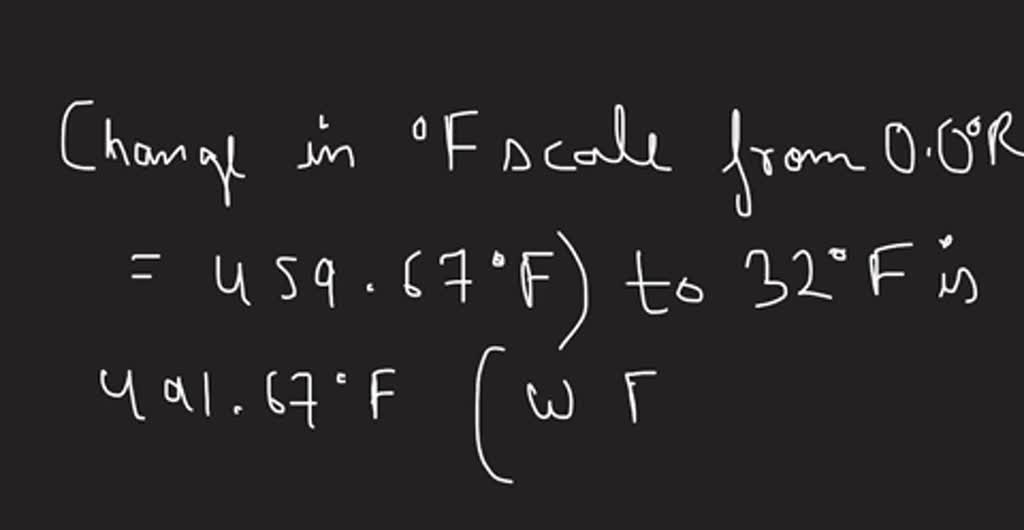 Change in °F scale from 0.0°R
= 459.67°F) to 32°F is
491.67°F (W F